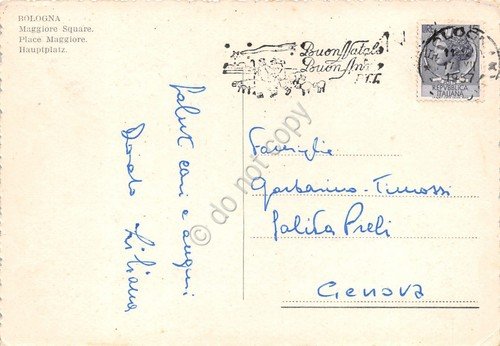 BOLOGNA
Maggiore Square.
Place Maggiore.
Hauptplatz.
Buon Natale
Buon Anno
1957
REPVBBLICA
ITALIANA
Saluti cari e auguri
Dorato Liliana
Famiglie
Garbarino-Timossi
Salita Preli
Genova
do not copy